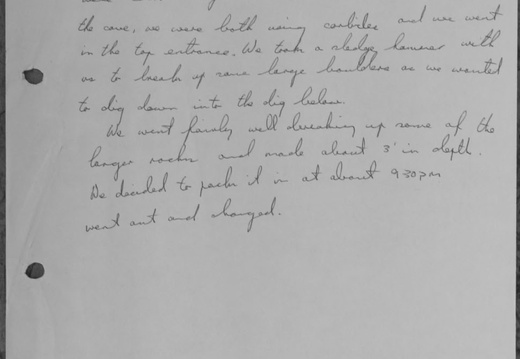 the cave, we were both using carbides and we went
in the top entrance. We took a sledge hammer with
us to break up some large boulders as we wanted
to dig down into the dig below.
We went fairly well breaking up some of the
larger rocks and made about 3' in depth.
We decided to pack it in at about 930pm
went out and changed.